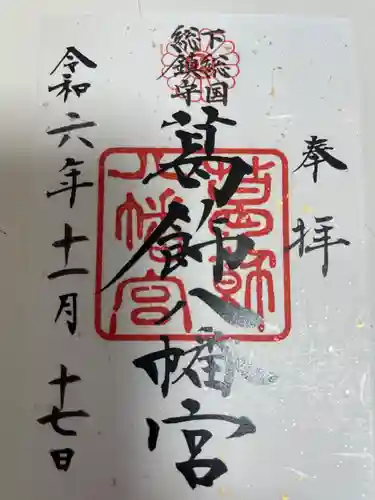 奉拝
下総国
総鎮守
葛飾八幡宮
令和六年十一月十七日
葛飾
八幡宮